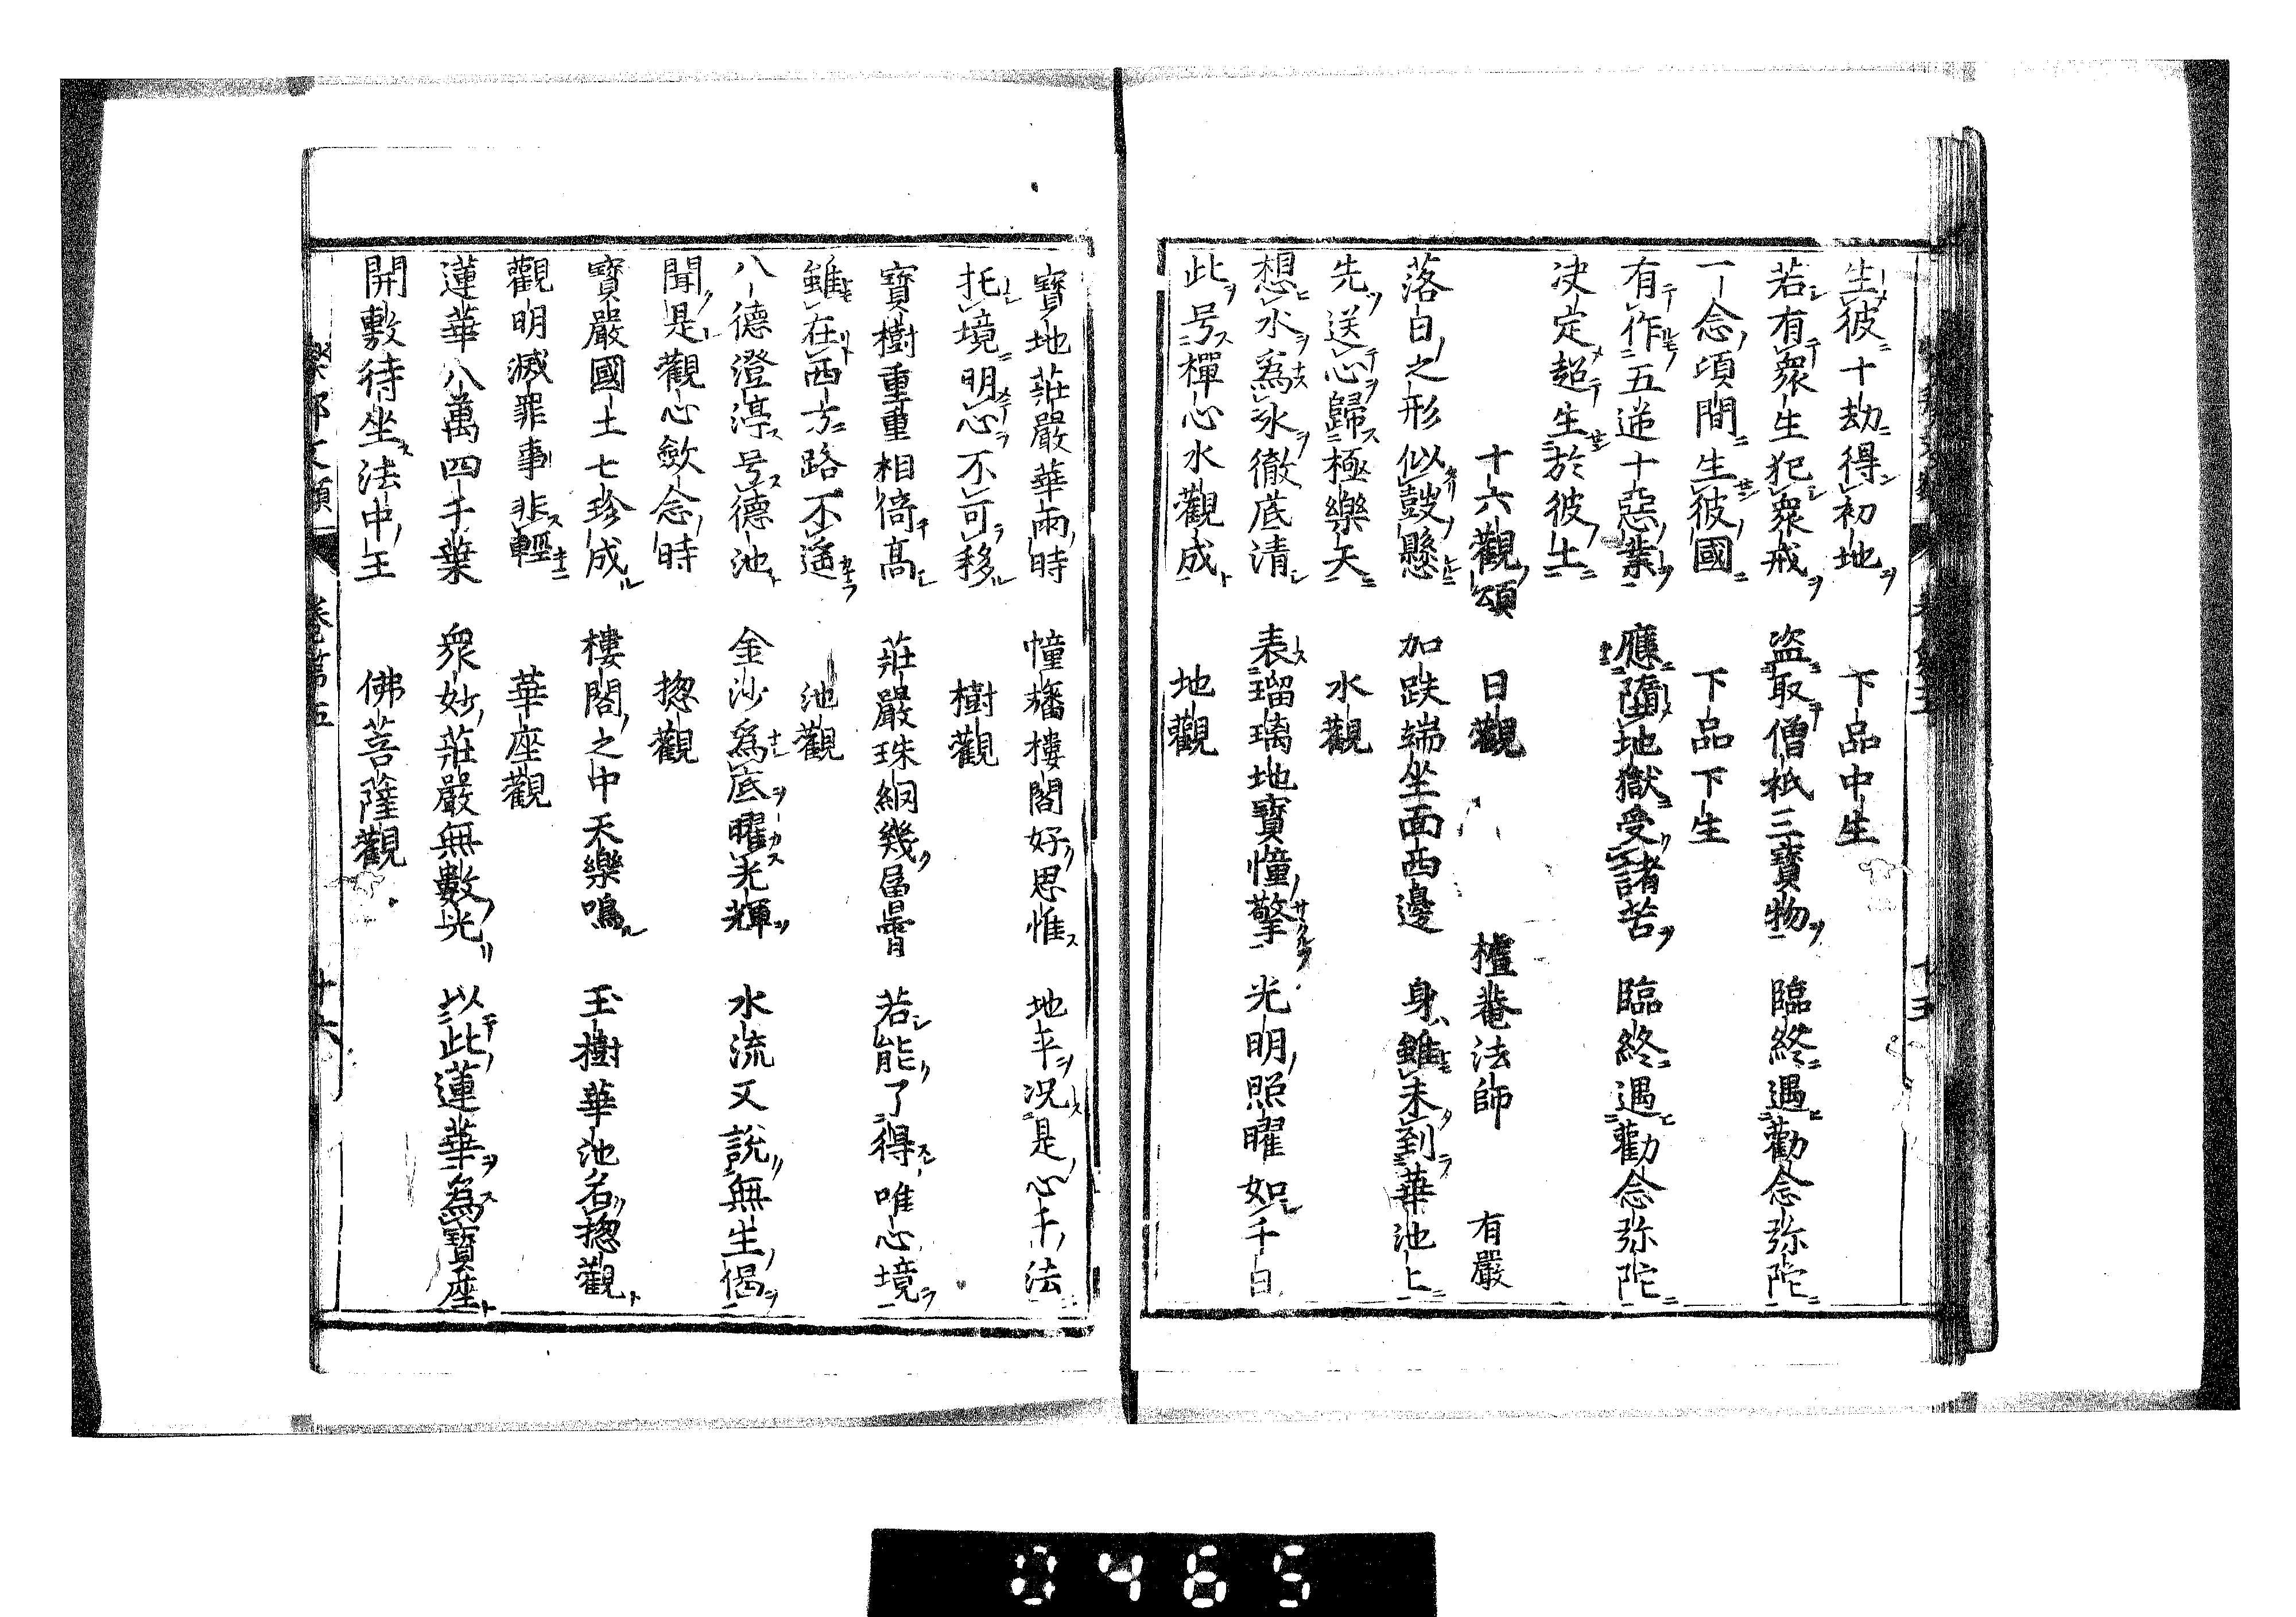 生彼十劫得初地　下品中生
若有衆生犯衆戒　盗取僧祇三寶物　臨終遇勸念弥陀
一念頃間生彼國　下品下生
有作五逆十惡業　應墮地獄受諸苦　臨終遇勸念弥陀
决定超生於彼土
十六觀頌　日觀　櫨菴法師　有嚴
落日之形似鼓懸　加趺端坐面西邊　身雖未到華池上
先送心歸極樂天　水觀
想水爲氷徹底清　表瑠璃地寶幢擎　光明照曜如千日
此号禪心水觀成　地觀
寶地莊嚴華兩時　幢旛樓閣好思惟　地平況是心千法
托境明心不可移　樹觀
寶樹重重相倚高　莊嚴珠網幾層層　若能了得唯心境
雖在西方路不遙　池觀
八德澄渟号德池　金沙爲底曜光輝　水流又說無生偈
聞是觀心斂念時　揔觀
寶嚴國土七珍成　樓閣之中天樂鳴　玉樹華池名揔觀
觀明滅罪事非輕　華座觀
蓮華八萬四千葉　衆妙莊嚴無數光　以此蓮華爲寶座
開敷待坐法中王　佛菩薩觀
樂邦文類　卷第五　十六
0465